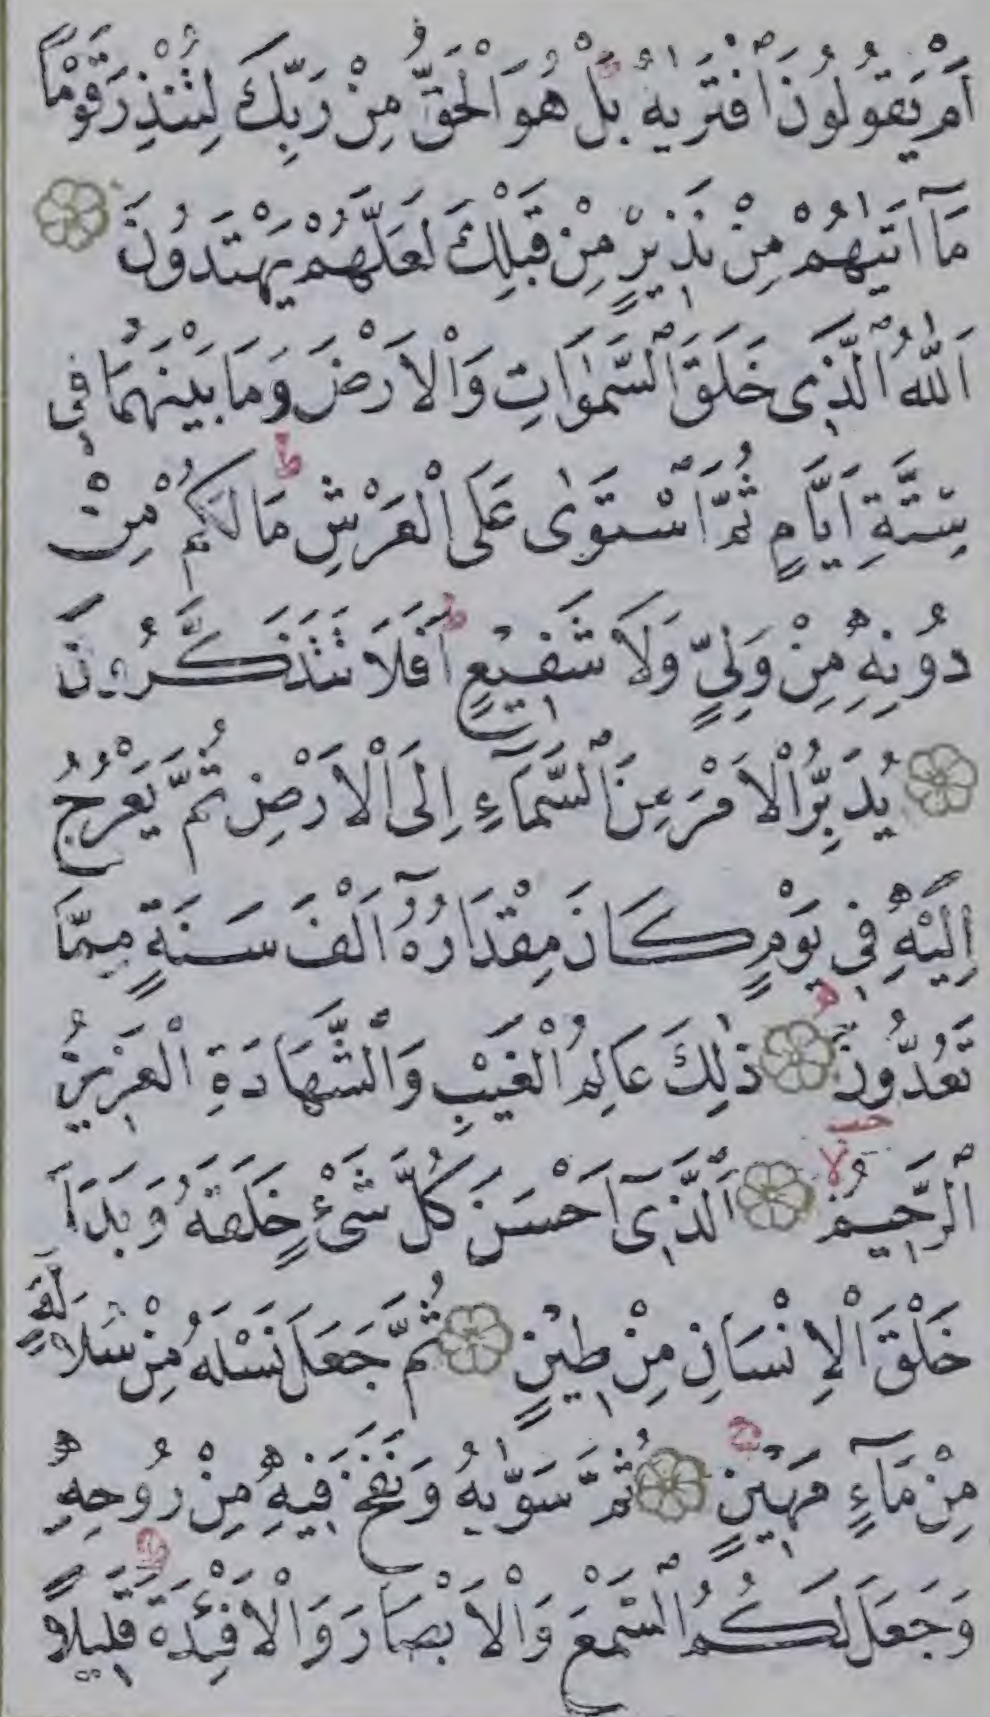 اَمْ يَقُولُونَ افْتَرٰيهُ بَلْ هُوَ الْحَقُّ مِنْ رَبِّكَ لِتُنْذِرَ قَوْمًا
مَآ اَتٰيهُمْ مِنْ نَذِيرٍ مِنْ قَبْلِكَ لَعَلَّهُمْ يَهْتَدُونَ
اَللّٰهُ الَّذِى خَلَقَ السَّمٰوَاتِ وَالْاَرْضَ وَمَا بَيْنَهُمَا فِى
سِتَّةِ اَيَّامٍ ثُمَّ اسْتَوٰى عَلَى الْعَرْشِ ط مَا لَكُمْ مِنْ
دُونِهِ مِنْ وَلِيٍّ وَلَا شَفِيعٍ ط اَفَلَا تَتَذَكَّرُونَ
يُدَبِّرُ الْاَمْرَ مِنَ السَّمَآءِ اِلَى الْاَرْضِ ثُمَّ يَعْرُجُ
اِلَيْهِ فِى يَوْمٍ كَانَ مِقْدَارُهُٓ اَلْفَ سَنَةٍ مِمَّا
تَعُدُّونَ ذٰلِكَ عَالِمُ الْغَيْبِ وَالشَّهَادَةِ الْعَزِيزُ
الرَّحِيمُ لا اَلَّذِىٓ اَحْسَنَ كُلَّ شَىْءٍ خَلَقَهُ وَبَدَاَ
خَلْقَ الْاِنْسَانِ مِنْ طِينٍ ثُمَّ جَعَلَ نَسْلَهُ مِنْ سُلَالَةٍ
مِنْ مَآءٍ مَهِينٍ ثُمَّ سَوّٰيهُ وَنَفَخَ فِيهِ مِنْ رُوحِهِ
وَجَعَلَ لَكُمُ السَّمْعَ وَالْاَبْصَارَ وَالْاَفْئِدَةَ قَلِيلًا